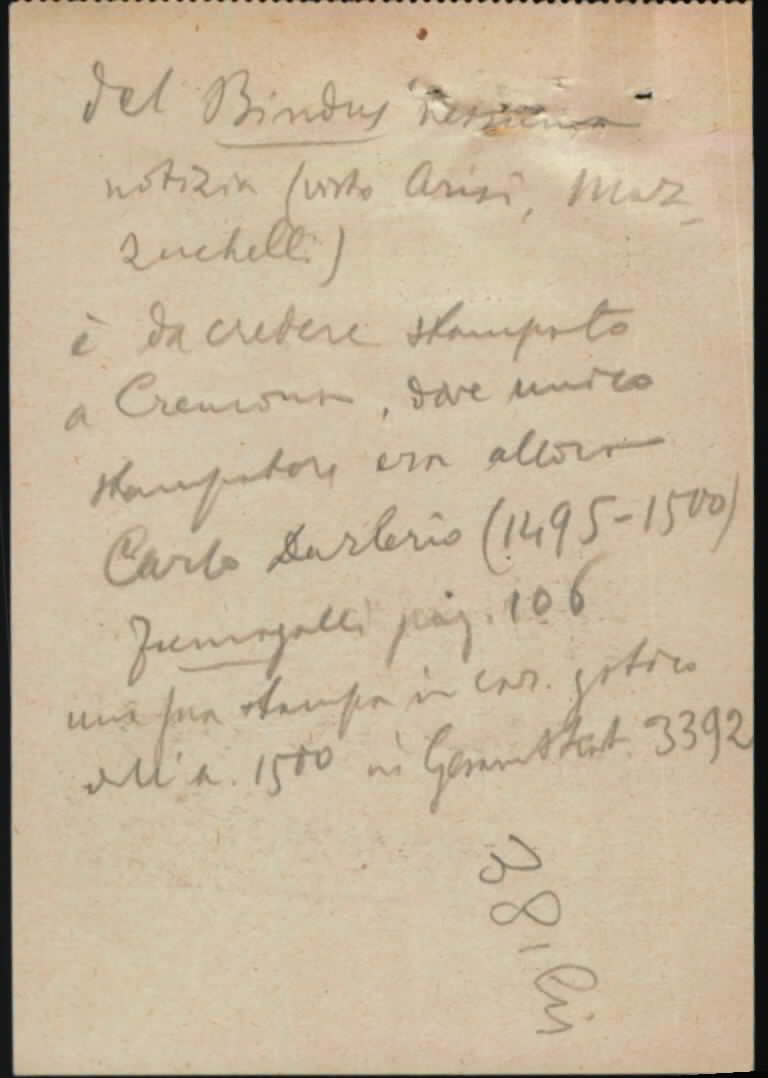 del Bindus nessuna
notizia (visto Arisi, Maz-
zuchelli)
è da credere stampato
a Cremona, dove unico
stampatore era allora
Carlo Darlerio (1495-1500)
Fumagalli pag. 106
una sua stampa in car. gotico
dell'a. 1500 in Gesamtkat. 3392
38, bis